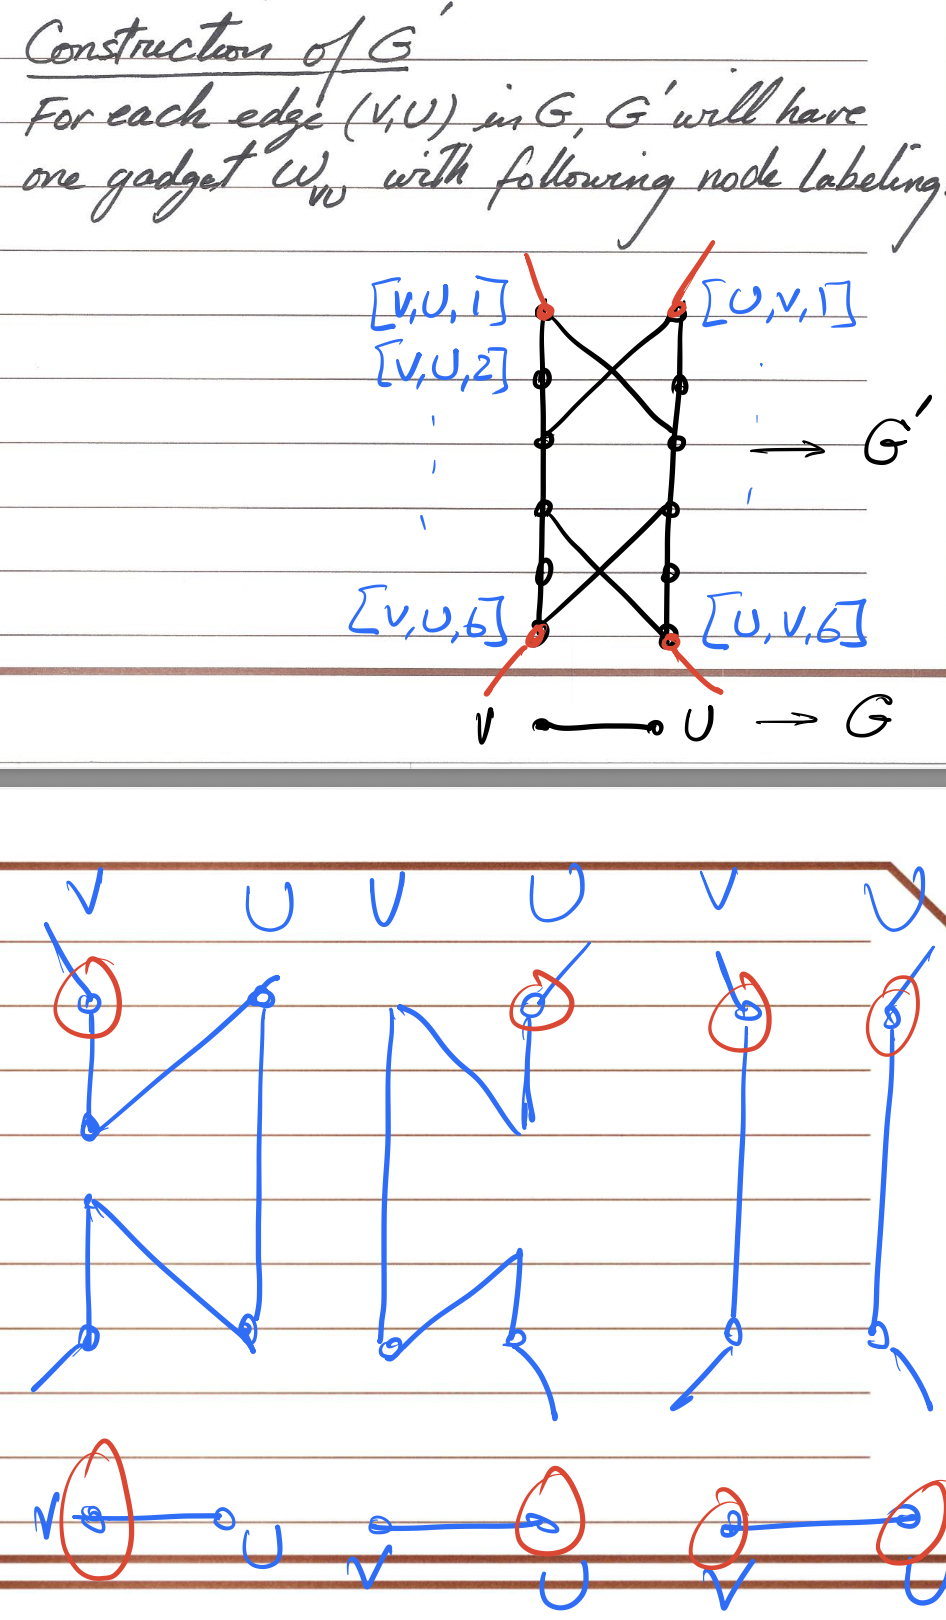 Construction of G'
For each edge (V,U) in G, G' will have
one gadget W_VU with following node labeling.
[V,U,1] [U,V,1]
[V,U,2]
→ G'
[V,U,6] [U,V,6]
V U → G
V U V U V U
V U V U V U